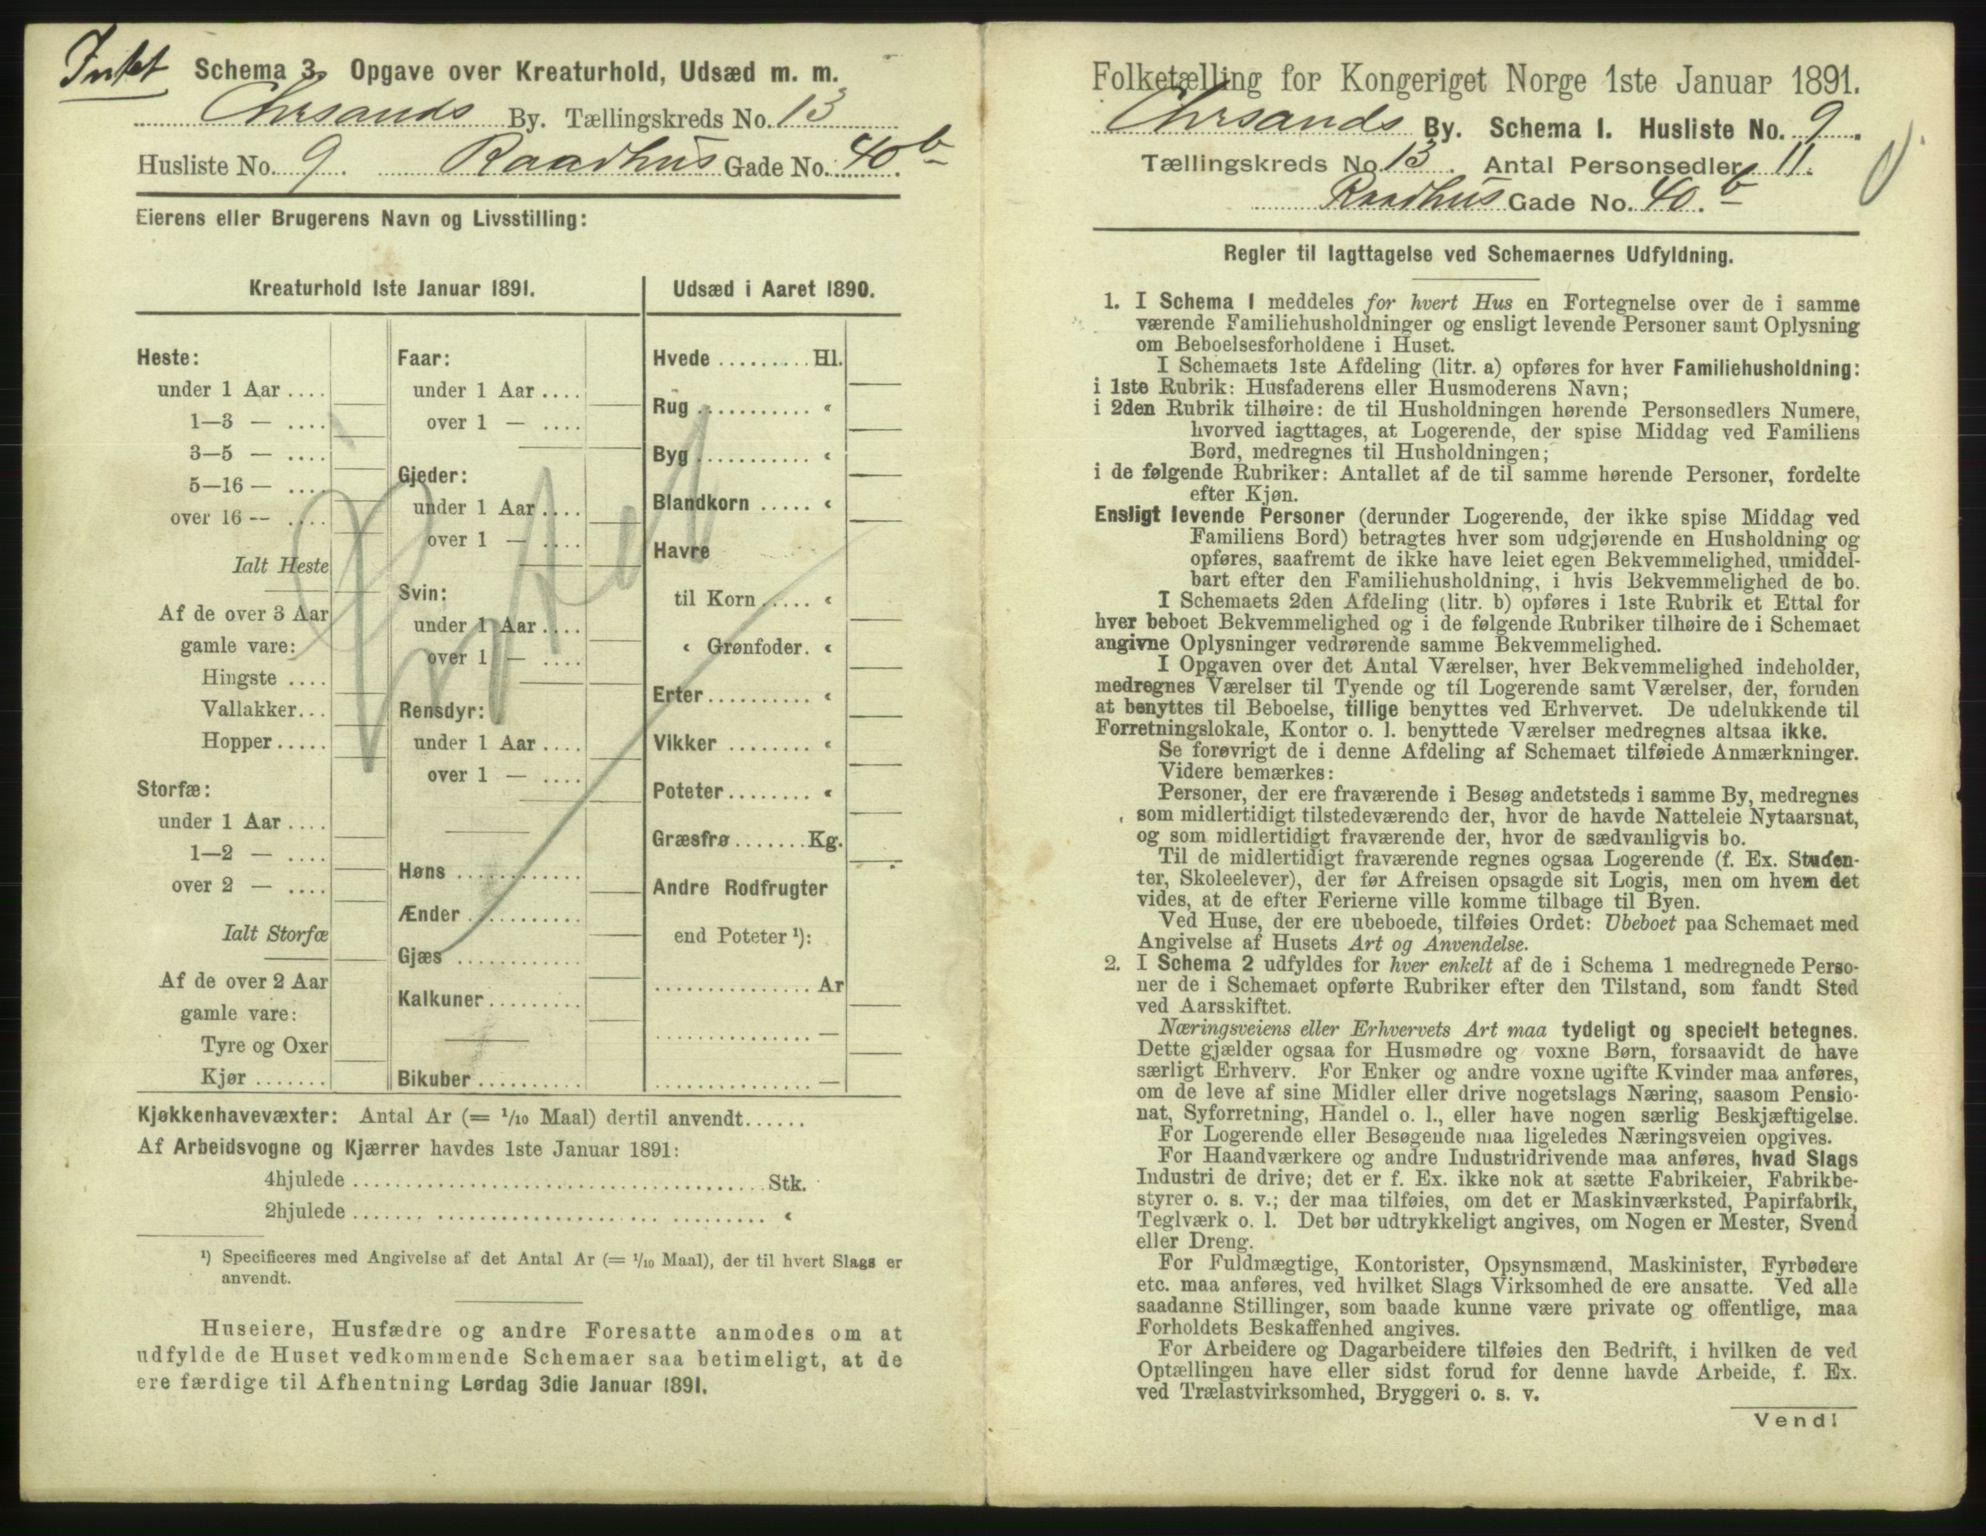 Intet
Schema 3. Opgave over Kreaturhold, Udsæd m. m.
Chrsands By. Tællingskreds No. 13
Husliste No. 9. Raadhus Gade No. 40 b
Eierens eller Brugerens Navn og Livsstilling:
Kreaturhold 1ste Januar 1891.
Heste:
under 1 Aar ....
1—3 — ....
3—5 — ....
5—16 — ....
over 16 — ....
Ialt Heste
Af de over 3 Aar
gamle vare:
Hingste ....
Vallakker...
Hopper.....
Storfæ:
under 1 Aar ....
1—2 — ....
over 2 — ....
Ialt Storfæ
Af de over 2 Aar
gamle vare:
Tyre og Oxer
Kjør .......
Faar:
under 1 Aar ....
over 1 — ....
Gjeder:
under 1 Aar ....
over 1 — ....
Svin:
under 1 Aar ....
over 1 — ....
Rensdyr:
under 1 Aar ....
over 1 — ....
Høns ............
Ænder ...........
Gjæs ............
Kalkuner.........
Bikuber ..........
Intet
Udsæd i Aaret 1890.
Hvede ......... Hl.
Rug ........... «
Byg ........... «
Blandkorn ..... «
Havre
til Korn ..... «
« Grønfoder. «
Erter.......... «
Vikker ........ «
Poteter........ «
Græsfrø ....... Kg.
Andre Rodfrugter
end Poteter ¹):
............... Ar
............... —
............... —
Kjøkkenhavevæxter: Antal Ar (= 1/10 Maal) dertil anvendt......
Af Arbeidsvogne og Kjærrer havdes 1ste Januar 1891:
4hjulede ....................................... Stk.
2hjulede ....................................... «
¹) Specificeres med Angivelse af det Antal Ar (= 1/10 Maal), der til hvert Slags er
anvendt.
Huseiere, Husfædre og andre Foresatte anmodes om at
udfylde de Huset vedkommende Schemaer saa betimeligt, at de
ere færdige til Afhentning Lørdag 3die Januar 1891.
Folketælling for Kongeriget Norge 1ste Januar 1891.
Chrsands By. Schema 1. Husliste No. 9.
Tællingskreds No. 13. Antal Personsedler 11.
Raadhus Gade No. 40. b
Regler til Iagttagelse ved Schemaernes Udfyldning.
1. I Schema 1 meddeles for hvert Hus en Fortegnelse over de i samme
værende Familiehusholdninger og ensligt levende Personer samt Oplysning
om Beboelsesforholdene i Huset.
I Schemaets 1ste Afdeling (litr. a) opføres for hver Familiehusholdning:
i 1ste Rubrik: Husfaderens eller Husmoderens Navn;
i 2den Rubrik tilhøire: de til Husholdningen hørende Personsedlers Numere,
hvorved iagttages, at Logerende, der spise Middag ved Familiens
Bord, medregnes til Husholdningen;
i de følgende Rubriker: Antallet af de til samme hørende Personer, fordelte
efter Kjøn.
Ensligt levende Personer (derunder Logerende, der ikke spise Middag ved
Familiens Bord) betragtes hver som udgjørende en Husholdning og
opføres, saafremt de ikke have leiet egen Bekvemmelighed, umiddel-
bart efter den Familiehusholdning, i hvis Bekvemmelighed de bo.
I Schemaets 2den Afdeling (litr. b) opføres i 1ste Rubrik et Ettal for
hver beboet Bekvemmelighed og i de følgende Rubriker tilhøire de i Schemaet
angivne Oplysninger vedrørende samme Bekvemmelighed.
I Opgaven over det Antal Værelser, hver Bekvemmelighed indeholder,
medregnes Værelser til Tyende og til Logerende samt Værelser, der, foruden
at benyttes til Beboelse, tillige benyttes ved Erhvervet. De udelukkende til
Forretningslokale, Kontor o. l. benyttede Værelser medregnes altsaa ikke.
Se forøvrigt de i denne Afdeling af Schemaet tilføiede Anmærkninger.
Videre bemærkes:
Personer, der ere fraværende i Besøg andetsteds i samme By, medregnes
som midlertidigt tilstedeværende der, hvor de havde Natteleie Nytaarsnat,
og som midlertidigt fraværende der, hvor de sædvanligvis bo.
Til de midlertidigt fraværende regnes ogsaa Logerende (f. Ex. Studen-
ter, Skoleelever), der før Afreisen opsagde sit Logis, men om hvem det
vides, at de efter Ferierne ville komme tilbage til Byen.
Ved Huse, der ere ubeboede, tilføies Ordet: Ubeboet paa Schemaet med
Angivelse af Husets Art og Anvendelse.
2. I Schema 2 udfyldes for hver enkelt af de i Schema 1 medregnede Perso-
ner de i Schemaet opførte Rubriker efter den Tilstand, som fandt Sted
ved Aarsskiftet.
Næringsveiens eller Erhvervets Art maa tydeligt og specielt betegnes.
Dette gjælder ogsaa for Husmødre og voxne Børn, forsaavidt de have
særligt Erhverv. For Enker og andre voxne ugifte Kvinder maa anføres,
om de leve af sine Midler eller drive nogetslags Næring, saasom Pensio-
nat, Syforretning, Handel o. l., eller have nogen særlig Beskjæftigelse.
For Logerende eller Besøgende maa ligeledes Næringsveien opgives.
For Haandværkere og andre Industridrivende maa anføres, hvad Slags
Industri de drive; det er f. Ex. ikke nok at sætte Fabrikeier, Fabrikbe-
styrer o. s. v.; der maa tilføies, om det er Maskinværksted, Papirfabrik,
Teglværk o. l. Det bør udtrykkeligt angives, om Nogen er Mester, Svend
eller Dreng.
For Fuldmægtige, Kontorister, Opsynsmænd, Maskinister, Fyrbødere
etc. maa anføres, ved hvilket Slags Virksomhed de ere ansatte. Ved alle
saadanne Stillinger, som baade kunne være private og offentlige, maa
Forholdets Beskaffenhed angives.
For Arbeidere og Dagarbeidere tilføies den Bedrift, i hvilken de ved
Optællingen have eller sidst forud for denne havde Arbeide, f. Ex.
ved Trælastvirksomhed, Bryggeri o. s. v.
Vend!